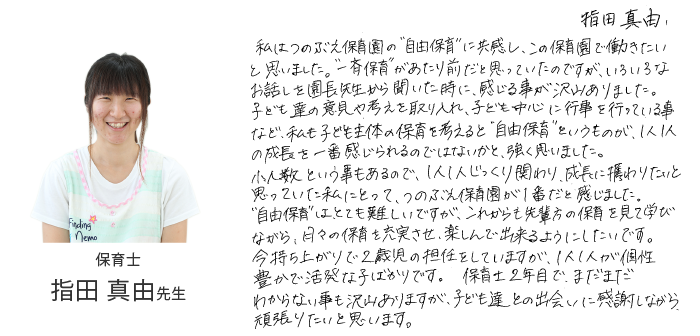 指田 真由
私はつのぶえ保育園の"自由保育"に共感し、この保育園で働きたい
と思いました。"一斉保育"があたり前だと思っていたのですが、いろいろな
お話しを園長先生から聞いた時に、感じる事が沢山ありました。
子ども達の意見や考えを取り入れ、子ども中心に行事を行っている事
など、私も子ども主体の保育を考えると"自由保育"というものが、1人1人
の成長を一番感じられるのではないかと、強く思いました。
少人数という事もあるので、1人1人じっくり関わり、成長に携わりたいと
思っていた私にとって、つのぶえ保育園が1番だと感じました。
"自由保育"はとても難しいですが、これからも先輩方の保育を見て学び
ながら、日々の保育を充実させ、楽しんで出来るようにしたいです。
今持ち上がりで2歳児の担任をしていますが、1人1人が個性
豊かで活発な子ばかりです。 保育士2年目で、まだまだ
わからない事も沢山ありますが、子ども達との出会いに感謝しながら
頑張りたいと思います。
Finding
Nemo
保育士
指田 真由先生